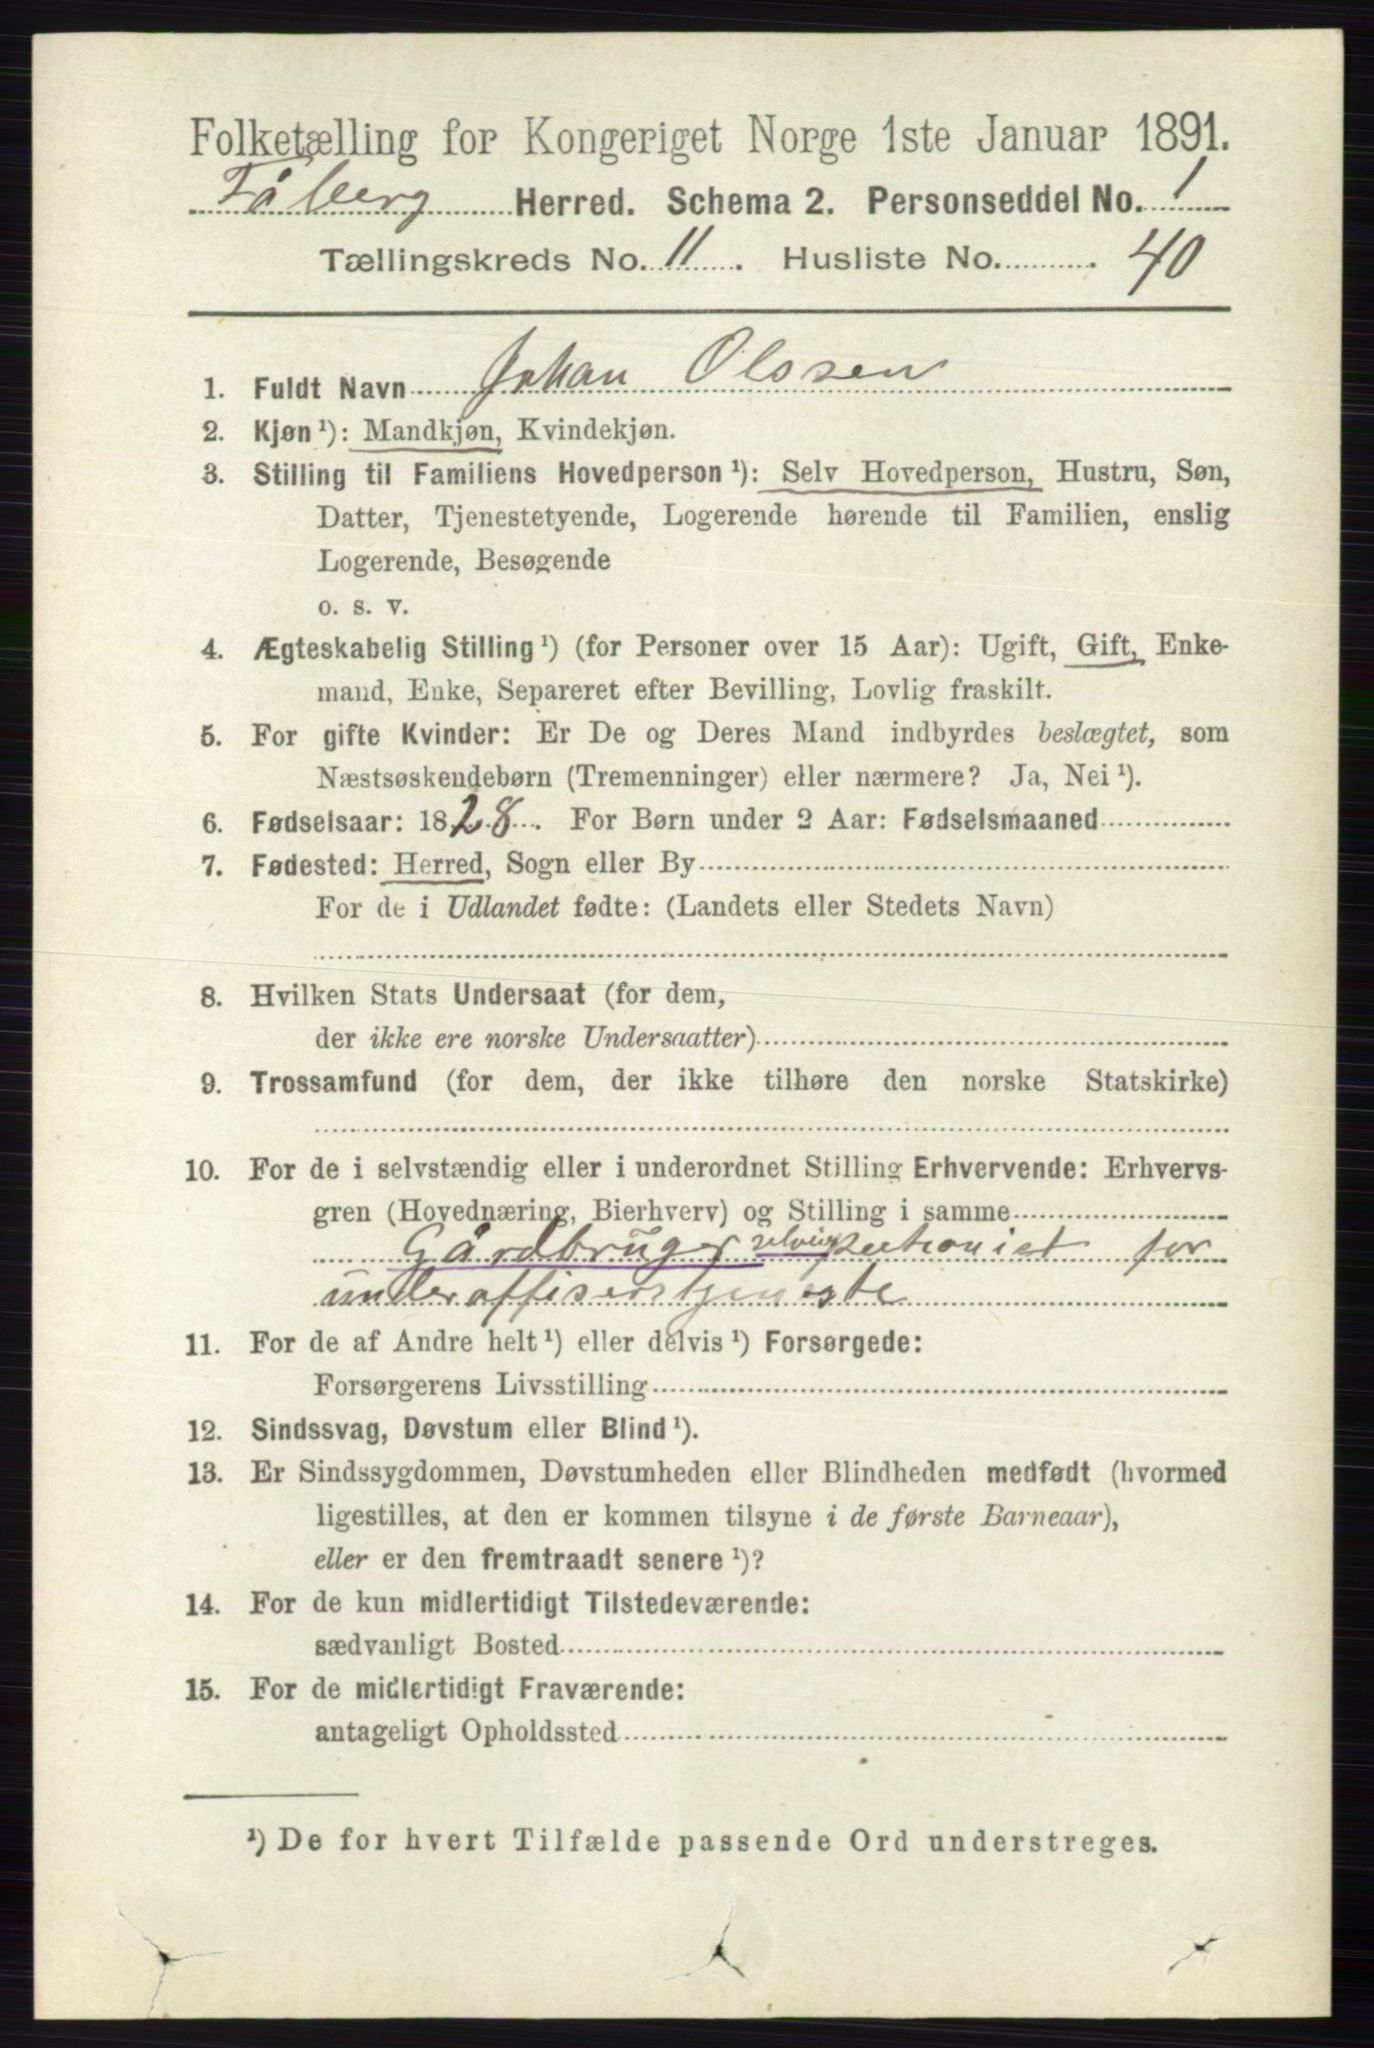 Folketælling for Kongeriget Norge 1ste Januar 1891.
Fåberg Herred. Schema 2. Personseddel No. 1
Tællingskreds No. 11. Husliste No. 40
1. Fuldt Navn Johan Olssen
2. Kjøn¹): Mandkjøn, Kvindekjøn.
3. Stilling til Familiens Hovedperson¹): Selv Hovedperson, Hustru, Søn,
Datter, Tjenestetyende, Logerende hørende til Familien, enslig
Logerende, Besøgende
o. s. v.
4. Ægteskabelig Stilling¹) (for Personer over 15 Aar): Ugift, Gift, Enke-
mand, Enke, Separeret efter Bevilling, Lovlig fraskilt.
5. For gifte Kvinder: Er De og Deres Mand indbyrdes beslægtet, som
Næstsøskendebørn (Tremenninger) eller nærmere? Ja, Nei¹).
6. Fødselsaar: 1828. For Børn under 2 Aar: Fødselsmaaned
7. Fødested: Herred, Sogn eller By
For de i Udlandet fødte: (Landets eller Stedets Navn)
8. Hvilken Stats Undersaat (for dem,
der ikke ere norske Undersaatter)
9. Trossamfund (for dem, der ikke tilhøre den norske Statskirke)
10. For de i selvstændig eller i underordnet Stilling Erhvervende: Erhvervs-
gren (Hovednæring, Bierhverv) og Stilling i samme
Gårdbruger selveier for
underoffiserstjeneste
11. For de af Andre helt¹) eller delvis¹) Forsørgede:
Forsørgerens Livsstilling
12. Sindssvag, Døvstum eller Blind¹).
13. Er Sindssygdommen, Døvstumheden eller Blindheden medfødt (hvormed
ligestilles, at den er kommen tilsyne i de første Barneaar),
eller er den fremtraadt senere¹)?
14. For de kun midlertidigt Tilstedeværende:
sædvanligt Bosted
15. For de midlertidigt Fraværende:
antageligt Opholdssted
¹) De for hvert Tilfælde passende Ord understreges.